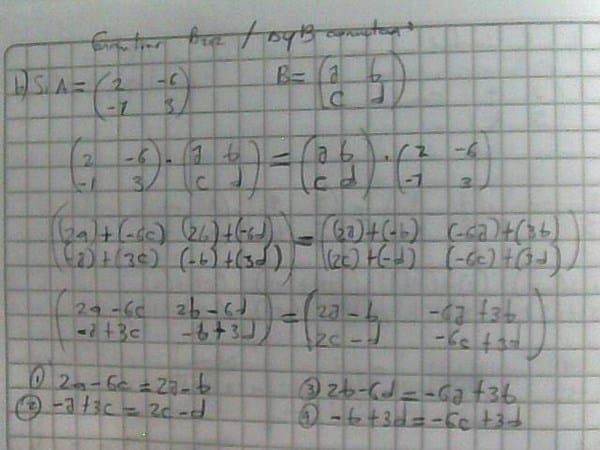 / A y B conmutan:
b) Si A = (2 -6 / -1 3) B = (a b / c d)
(2 -6 / -1 3) · (a b / c d) = (a b / c d) · (2 -6 / -1 3)
((2a)+(-6c) (2b)+(-6d) / (-a)+(3c) (-b)+(3d)) = ((2a)+(-b) (-6a)+(3b) / (2c)+(-d) (-6c)+(3d))
(2a-6c 2b-6d / -a+3c -b+3d) = (2a-b -6a+3b / 2c-d -6c+3d)
① 2a-6c=2a-b ③ 2b-6d=-6a+3b
② -a+3c=2c-d ④ -b+3d=-6c+3d